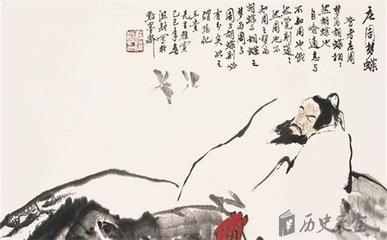 庄周梦蝶
昔者庄周
梦为胡蝶栩栩
然胡蝶也
自喻适志与
不知周也俄
然觉则蘧蘧
然周也不
知周之梦为
胡蝶与
胡蝶之
梦为周与
周与胡蝶则必
有分矣此之
谓物化
先生雅赏
历史